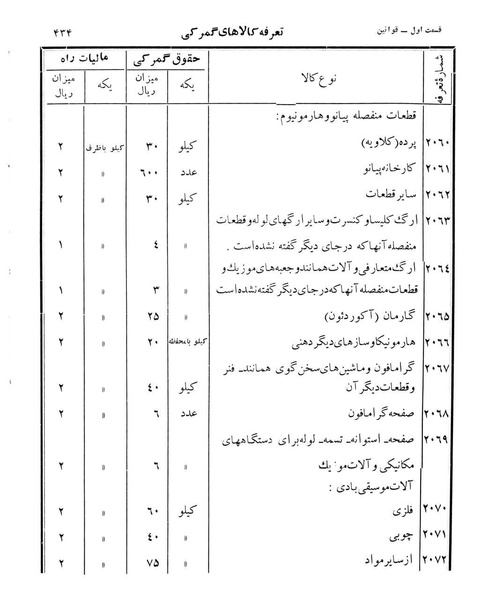 قسمت اول ـ قوانین تعرفه کالاهای گمرکی ۴۳۴
شمارهٔ تعرفه نوع کالا حقوق گمرکی مالیات راه
یکه میزان ریال یکه میزان ریال
قطعات منفصله پیانو و هارمونیوم:
۲۰۶۰ پرده (کلاویه) کیلو ۳۰ کیلو باظرف ۲
۲۰۶۱ کارخانه پیانو عدد ۶۰۰ » ۲
۲۰۶۲ سایر قطعات کیلو ۳۰ » ۲
۲۰۶۳ ارگ کلیسا و کنسرت و سایر ارگهای لوله و قطعات
منفصله آنها که درجای دیگر گفته نشده است . » ٤ » ۱
۲۰۶٤ ارگ متعارفی و آلات همانند و جعبه های موزیک و
قطعات منفصله آنها که درجای دیگر گفته نشده است » ۳ » ۱
۲۰۶۵ گارمان (آکوردئون) » ۲۵ » ۲
۲۰۶۶ هارمونیکا و سازهای دیگر دهنی » ۲۰ کیلو بامحفظه ۲
۲۰۶۷ گرامافون و ماشین های سخن گوی همانند ـ فنر
و قطعات دیگر آن کیلو ٤۰ » ۲
۲۰۶۸ صفحه گرامافون عدد ۶ » ۲
۲۰۶۹ صفحه ـ استوانه ـ تسمه ـ لوله برای دستگاههای
مکانیکی و آلات موزیک » ۶ » ۲
آلات موسیقی بادی :
۲۰۷۰ فلزی کیلو ۶۰ » ۲
۲۰۷۱ چوبی » ٤۰ » ۲
۲۰۷۲ از سایر مواد » ۷۵ » ۲